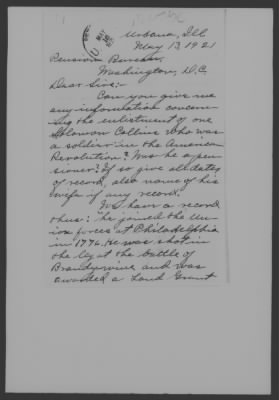 Urbana, Ill
May 13, 1921
Pension Bureau.
Washington, D.C.
Dear Sirs:-
Can you give me
any information concern-
ing the enlistment of one
Solomon Collins who was
a soldier in the American
Revolution? Was he a pen-
sioner? If so give all dates
of record, also name of his
wife if any record.
We have a record
thus: "he joined the Un-
ion forces at Philadelphia
in 1776. He was shot in
the leg at the battle of
Brandywine and was
awarded a Land Grant